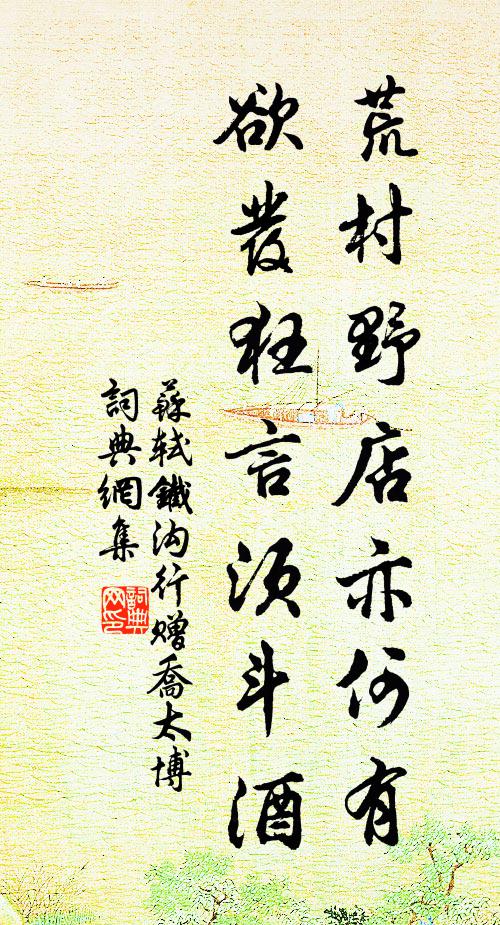 荒村野店亦何有
欲發狂言須斗酒
蘇軾鐵沟行贈喬太博
詞典網集
詞典网印